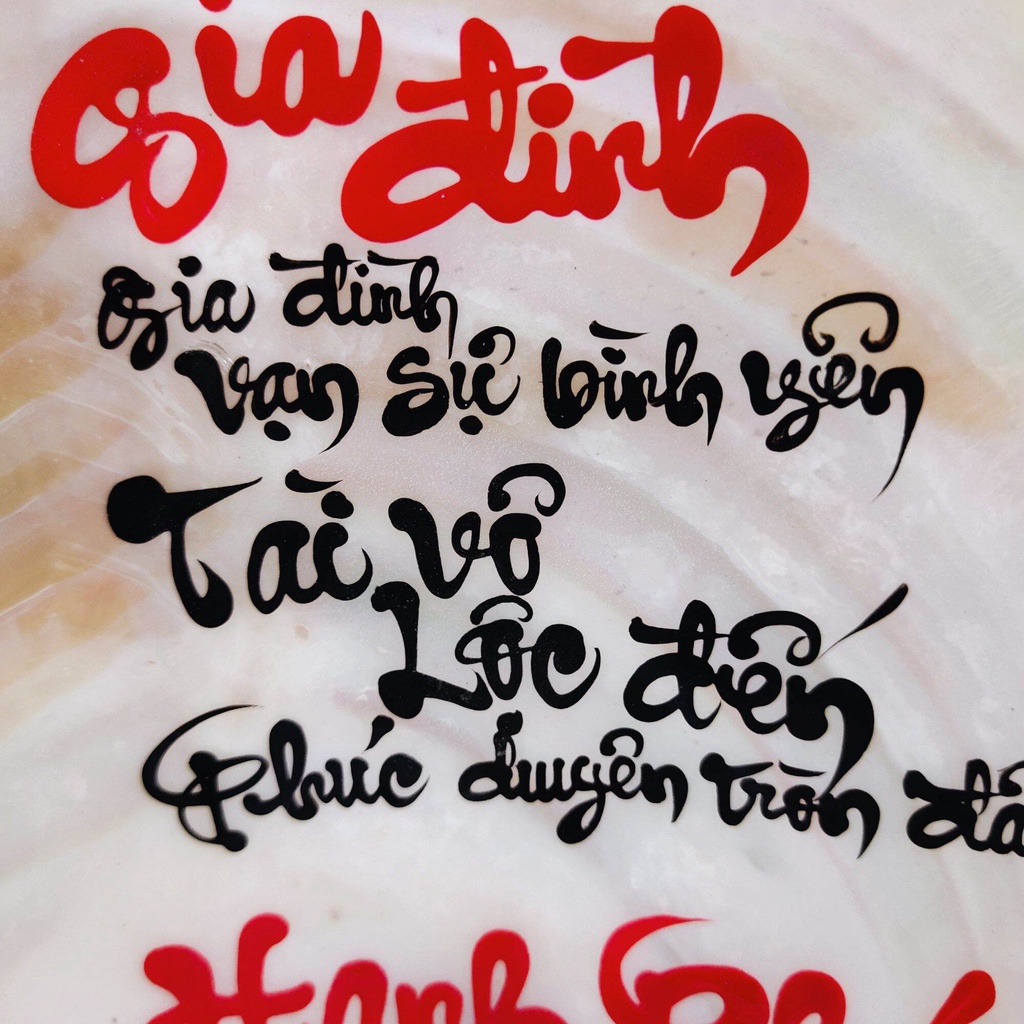 Gia đình
Gia đình
vạn sự bình yên
Tài vô
Lộc đến
Phúc duyên tròn